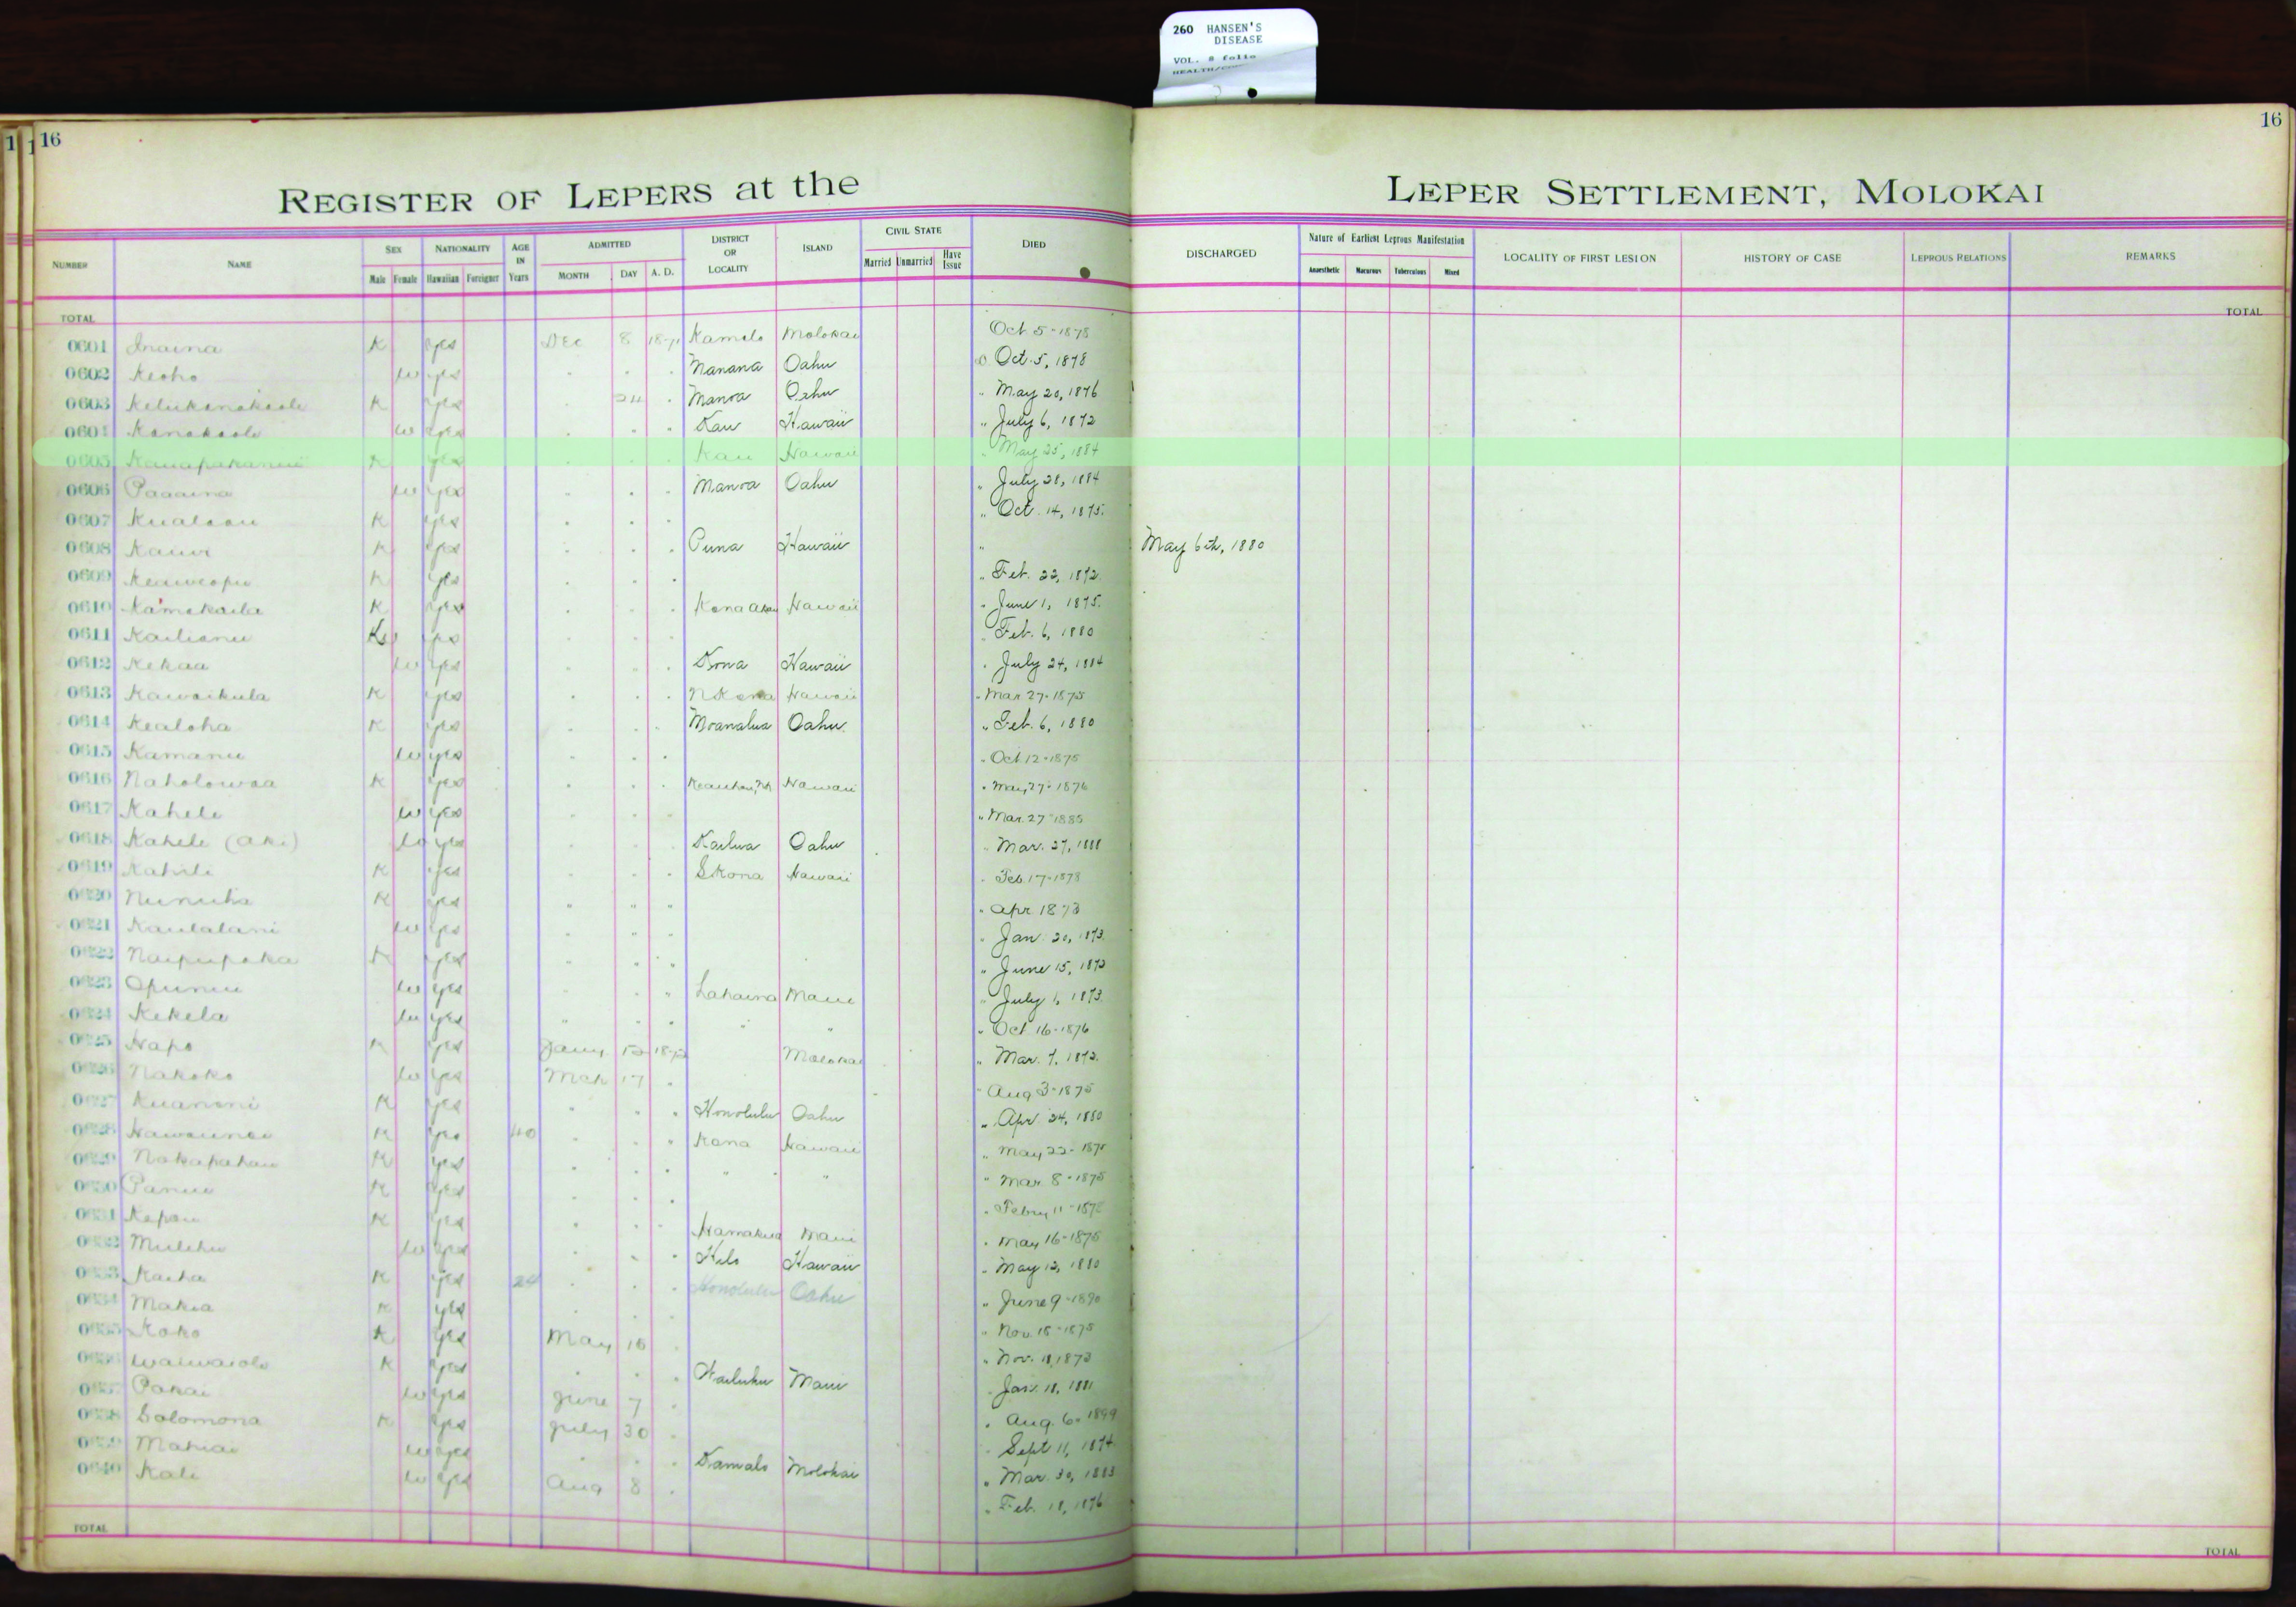 260 HANSEN'S
DISEASE
VOL. 8 folio
16
16
REGISTER OF LEPERS at the
LEPER SETTLEMENT, MOLOKAI
NUMBER NAME SEX Male Female NATIONALITY Hawaiian Foreigner AGE IN Years ADMITTED MONTH DAY A. D. DISTRICT OR LOCALITY ISLAND CIVIL STATE Married Unmarried Have Issue DIED DISCHARGED Nature of Earliest Leprous Manifestation Anaesthetic Macurous Tuberculous Mixed LOCALITY OF FIRST LESION HISTORY OF CASE LEPROUS RELATIONS REMARKS
TOTAL TOTAL
0601 Inaina K yes Dec 8 1871 Kamalo Molokai Oct 5-1878
0602 Keoho w yes Manana Oahu Oct. 5, 1878
0603 K yes 24 Manoa Oahu " May 20, 1876
0604 Kanakaole w yes Kau Hawaii " July 6, 1872
0605 K yes Kau Hawaii " May 25, 1884
0606 Paaaina w yes Manoa Oahu " July 28, 1884
0607 K yes " Oct. 14, 1875.
0608 Kauwi K yes Puna Hawaii " May 6th, 1880
0609 Keaweopu K yes " Feb. 22, 1872.
0610 Kamakaila K yes Kona Akau Hawaii " June 1, 1875.
0611 Kailianu yes Feb. 6, 1880
0612 Kekaa w yes Kona Hawaii " July 24, 1884
0613 Kawaikula K yes N Kona Hawaii " Mar 27-1875
0614 Kealoha K yes Moanalua Oahu " Feb. 6, 1880
0615 Kamanu w yes " Oct 12-1875
0616 Naholowaa K yes Keauhou, Hawaii " May 27-1876
0617 Kahele w yes " Mar. 27-1885
0618 Kahele (aki) w yes Kailua Oahu " Mar. 27, 1888
0619 Kahili K yes S Kona Hawaii " Feb. 17-1878
0620 Nunuha K yes " " " " Apr 1873
0621 Kaulalani w yes " Jan. 20, 1873.
0622 Naipupaka K yes " June 15, 1873
0623 Opunui w yes Lahaina Maui " July 1, 1873.
0624 Kekela w yes " " " Oct 16-1876
0625 Hapo K yes Jany 12 1872 Molokai " Mar. 7, 1872.
0626 Nakoko w yes Mch 17 " Aug 3-1875
0627 Kuanoni K yes Honolulu Oahu " Apr. 24, 1880
0628 K yes 40 Kona Hawaii " May 22-1875
0629 Nakapahau K yes " " " Mar 8-1875
0630 Panui K yes " Febry 11-1875
0631 Kapau K yes Hamakua Maui " May 16-1875
0632 Mulehu w yes Hilo Hawaii " May 12, 1880
0633 Kaiha K yes 24 Honolulu Oahu " June 9-1890
0634 Makia K yes " Nov. 18-1875
0635 Koko K yes May 10 " Nov. 11, 1873
0636 Waiwaiole K yes Wailuku Maui " Jan. 18, 1881
0637 Pakai w yes June 7 " Aug. 6, 1899
0638 Solomona K yes July 30 " Sept 11, 1874
0639 Mahiai w yes Kamalo Molokai " Mar. 30, 1883
0640 Kali w yes Aug 8 " Feb. 18, 1876
TOTAL TOTAL